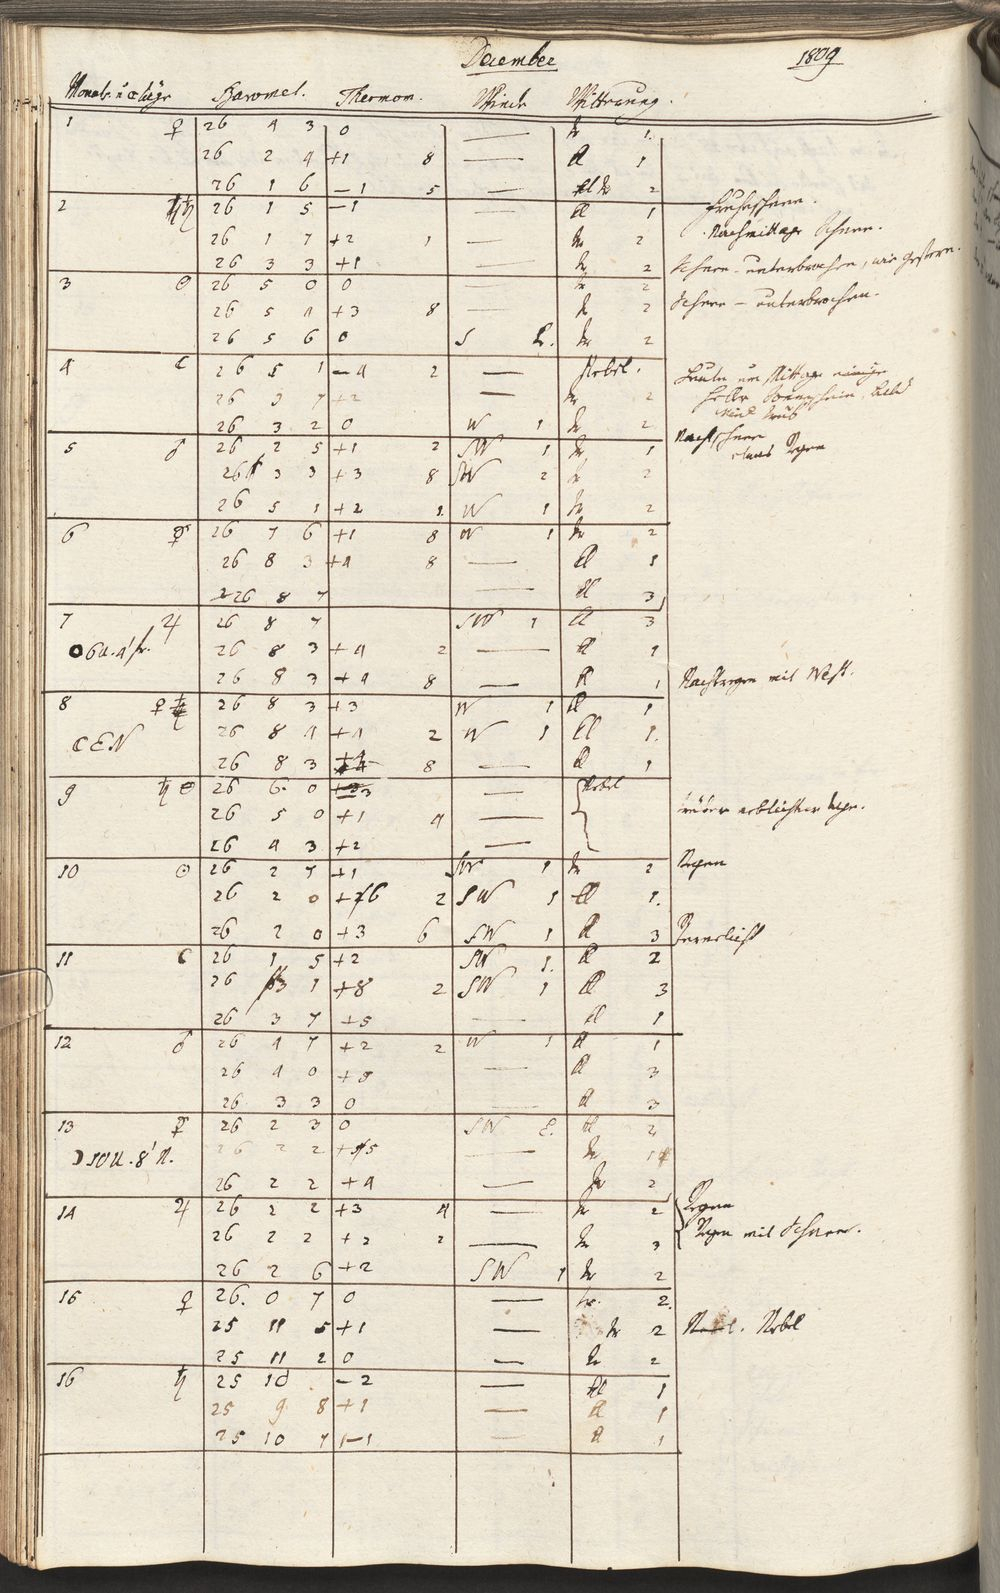 December 1809
Monats u. Täge Baromet. Thermom. Winde Witterung.
1 ♀ 26 4 3 0 — tr 1.
26 2 4 +1 8 — kl 1
26 1 6 —1 5 — tr 2
2 ♄ 26 1 5 —1 — kl 1 Früheschnee.
26 1 7 +2 1 — tr 2 Nachmittags Schnee.
26 3 3 +1 — tr 2 Schnee - unterbrochen, wie gestern.
3 ☉ 26 5 0 0 tr 2 Schnee - unterbrochen.
26 5 4 +3 8 — tr 2
26 5 6 0 S tr 2
4 ☾ 26 5 1 —4 2 — Nebel.
26 3 7 +2 — tr 2
26 3 2 0 W 1 tr 2
5 ♂ 26 2 5 +1 2 SW 1 tr 1 Nachtschnee
26 3 3 +3 8 SW 2 tr 2 etwas Regen
26 5 1 +2 1 W 1 tr 2
6 ☿ 26 7 6 +1 8 W 1 tr 2
26 8 3 +4 8 — kl 1
26 8 7 — kl 3
7 ♃ 26 8 7 SW 1 kl 3
26 8 3 +4 2 — kl 1
26 8 3 +4 8 — kl 1 Nachtregen mit West.
8 ♀ 26 8 3 +3 W 1 kl 1
☾ E N 26 8 4 +4 2 W 1 kl 1.
26 8 3 8 — kl 1
9 ♄ 26 6 0 — Nebel
26 5 0 +1 4 —
26 4 3 +2 —
10 ☉ 26 2 7 +1 SW 1 tr 2 Regen
26 2 0 2 SW 1 kl 1.
26 2 0 +3 6 SW 1 kl 3
11 ☾ 26 1 5 +2 SW 1. kl 2
26 3 1 +8 2 SW 1 kl 3
26 3 7 +5 — kl 1
12 ♂ 26 4 7 +2 2 W 1 kl 1
26 4 0 — kl 3
26 3 3 0 — kl 3
13 ☿ 26 2 3 0 SW kl 2
☽ 10 U. 8' N. 26 2 2 — tr
26 2 2 +4 — tr 2
14 ♃ 26 2 2 +3 4 — tr 2 Regen
26 2 2 +2 2 — tr 3 Regen mit Schnee.
26 2 6 +2 SW 1 tr 2
♀ 26. 0 7 0 — tr. 2.
25 11 5 +1 — tr 2 Nebel
25 11 2 0 — tr 2
16 ♄ 25 10 —2 — kl 1
25 9 8 +1 — kl 1
25 10 7 —1 — kl 1